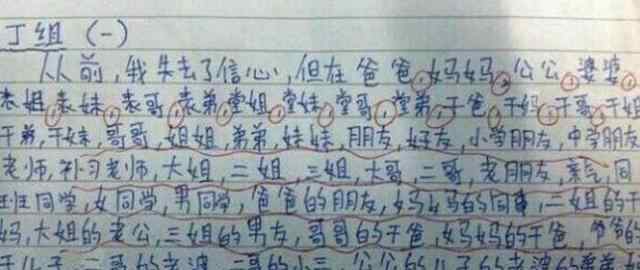 丁组(一)
从前,我失去了信心,但在爸爸,妈妈,公公,婆婆,
表姐,表妹,表哥,表弟,堂姐,堂妹,堂哥,堂弟,干爸,干妈,干哥,干姐
干弟,干妹,哥哥,姐姐,弟弟,妹妹,朋友,好友,小学朋友,中学朋友
老师,补习老师,大姐,二姐,三姐,大哥,二哥,老朋友,亲戚,同
班同学,女同学,男同学,爸爸的朋友,妈妈的同事,二姐的干
妈,大姐的老公,三姐的男友,哥哥的干爸,妈妈的干爸,爷爷的
干儿子,二哥的老婆,二哥的小三,公公的儿子的老婆的弟弟